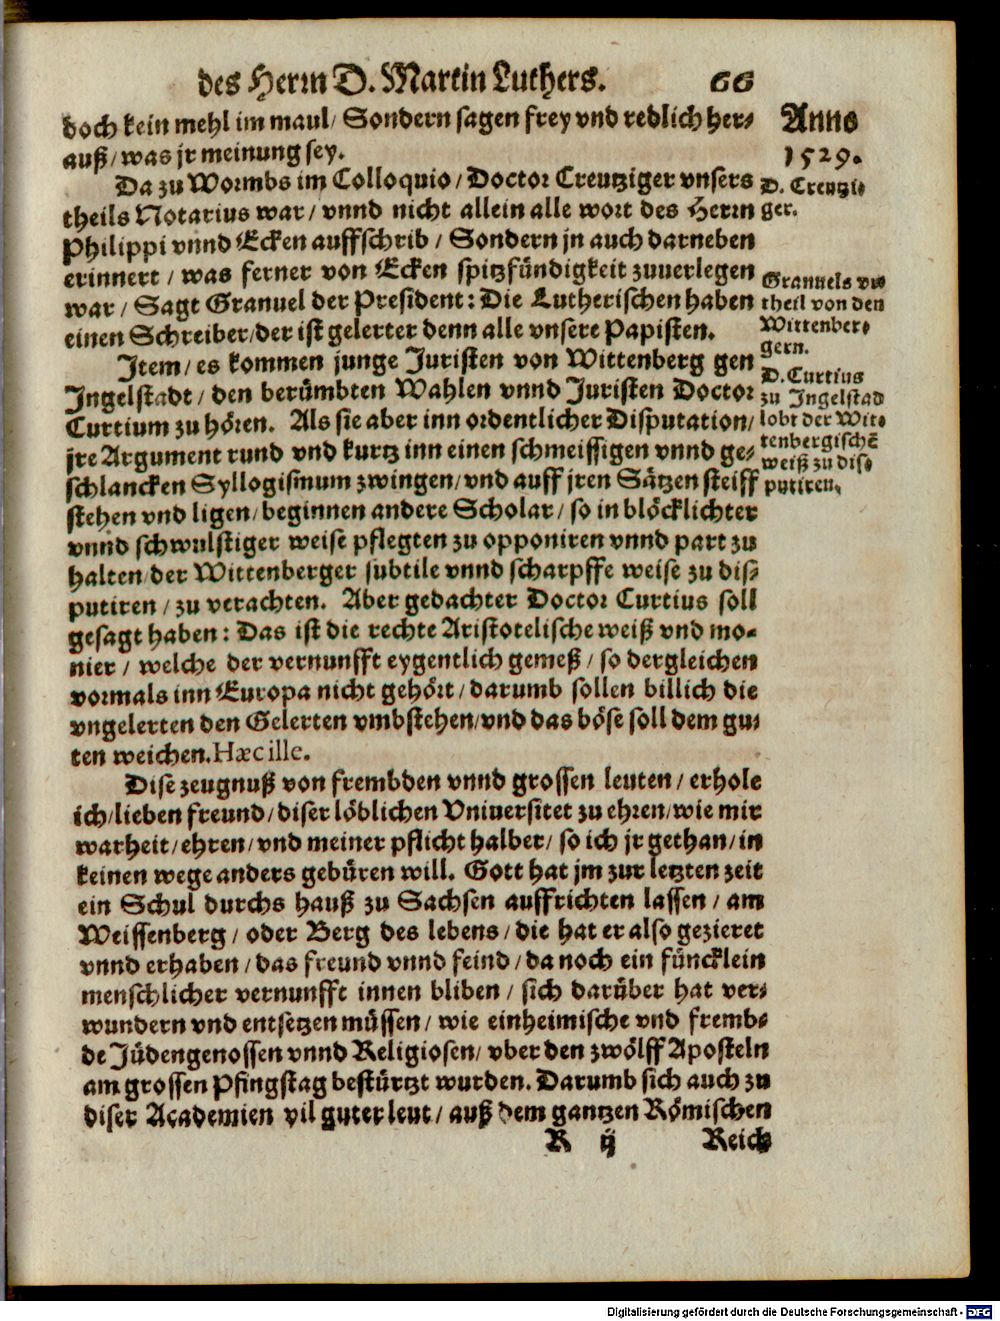 des Herrn D. Martin Luthers. 66
doch kein mehl im maul/ Sondern sagen frey vnd redlich her-
auß/ was jr meinung sey.
Da zu Wormbs im Colloquio/ Doctor Creutziger vnsers
theils Notarius war/ vnnd nicht allein alle wort des Herrn
Philippi vnnd Ecken auffschrib/ Sondern jn auch darneben
erinnert/ was ferner von Ecken spitzfündigkeit zuuerlegen
war/ Sagt Granuel der President: Die Lutherischen haben
einen Schreiber/ der ist gelerter denn alle vnsere Papisten.
Item/ es kommen junge Juristen von Wittenberg gen
Ingelstadt/ den berümbten Wahlen vnnd Juristen Doctor
Curtium zu hören. Als sie aber inn ordentlicher Disputation/
jre Argument rund vnd kurtz inn einen schmeissigen vnnd ge-
schlancken Syllogismum zwingen/ vnd auff jren Sätzen steiff
stehen vnd ligen/ beginnen andere Scholar/ so in blöcklichter
vnnd schwulstiger weise pflegten zu opponiren vnnd part zu
halten/ der Wittenberger subtile vnnd scharpffe weise zu dis-
putiren/ zu verachten. Aber gedachter Doctor Curtius soll
gesagt haben: Das ist die rechte Aristotelische weiß vnd mo-
nier/ welche der vernunfft eygentlich gemeß/ so dergleichen
vormals inn Europa nicht gehört/ darumb sollen billich die
vngelerten den Gelerten vmbstehen/ vnd das böse soll dem gu-
ten weichen. Hæc ille.
Dise zeugnuß von frembden vnnd grossen leuten/ erhole
ich/ lieben freund/ diser löblichen Vniuersitet zu ehren/ wie mir
warheit/ ehren/ vnd meiner pflicht halber/ so ich jr gethan/ in
keinen wege anders gebüren will. Gott hat jm zur letzten zeit
ein Schul durchs hauß zu Sachsen auffrichten lassen/ am
Weissenberg/ oder Berg des lebens/ die hat er also gezieret
vnnd erhaben/ das freund vnnd feind/ da noch ein füncklein
menschlicher vernunfft innen bliben/ sich darüber hat ver-
wundern vnd entsetzen müssen/ wie einheimische vnd fremb-
de Jüdengenossen vnnd Religiosen/ vber den zwölff Aposteln
am grossen Pfingstag bestürtzt wurden. Darumb sich auch zu
diser Academien vil guter leut/ auß dem gantzen Römischen
R ij Reich
Anno
1529.
D. Creutzi-
ger.
Granuels vr-
theil von den
Wittenber-
gern.
D. Curtius
zu Ingelstad
lobt der Wit-
tenbergischē
weiß zu dis-
putiren.
Digitalisierung gefördert durch die Deutsche Forschungsgemeinschaft - DFG